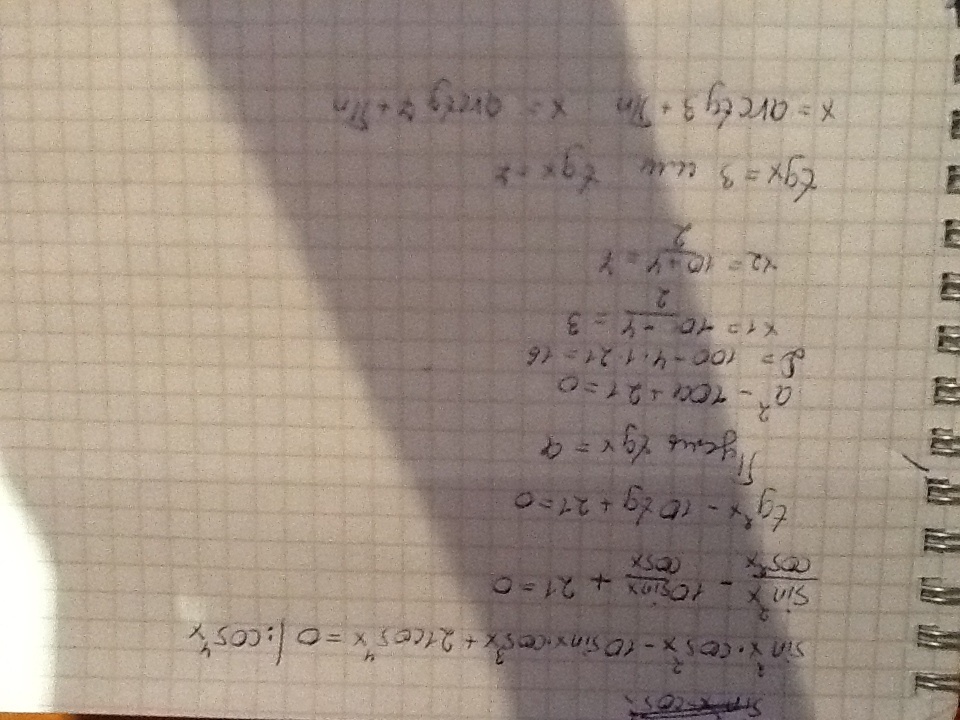 sin²x·cos²x - 10sinx·cos³x + 21cos⁴x = 0 | : cos⁴x
sin²x/cos²x - 10sinx/cosx + 21 = 0
tg²x - 10tg + 21 = 0
Пусть tgx = a
a² - 10a + 21 = 0
D = 100 - 4·1·21 = 16
x1 = 10 - 4/2 = 3
x2 = 10 + 4/2 = 7
tgx = 3 или tgx = 7
x = arctg 3 + πn x = arctg 7 + πn